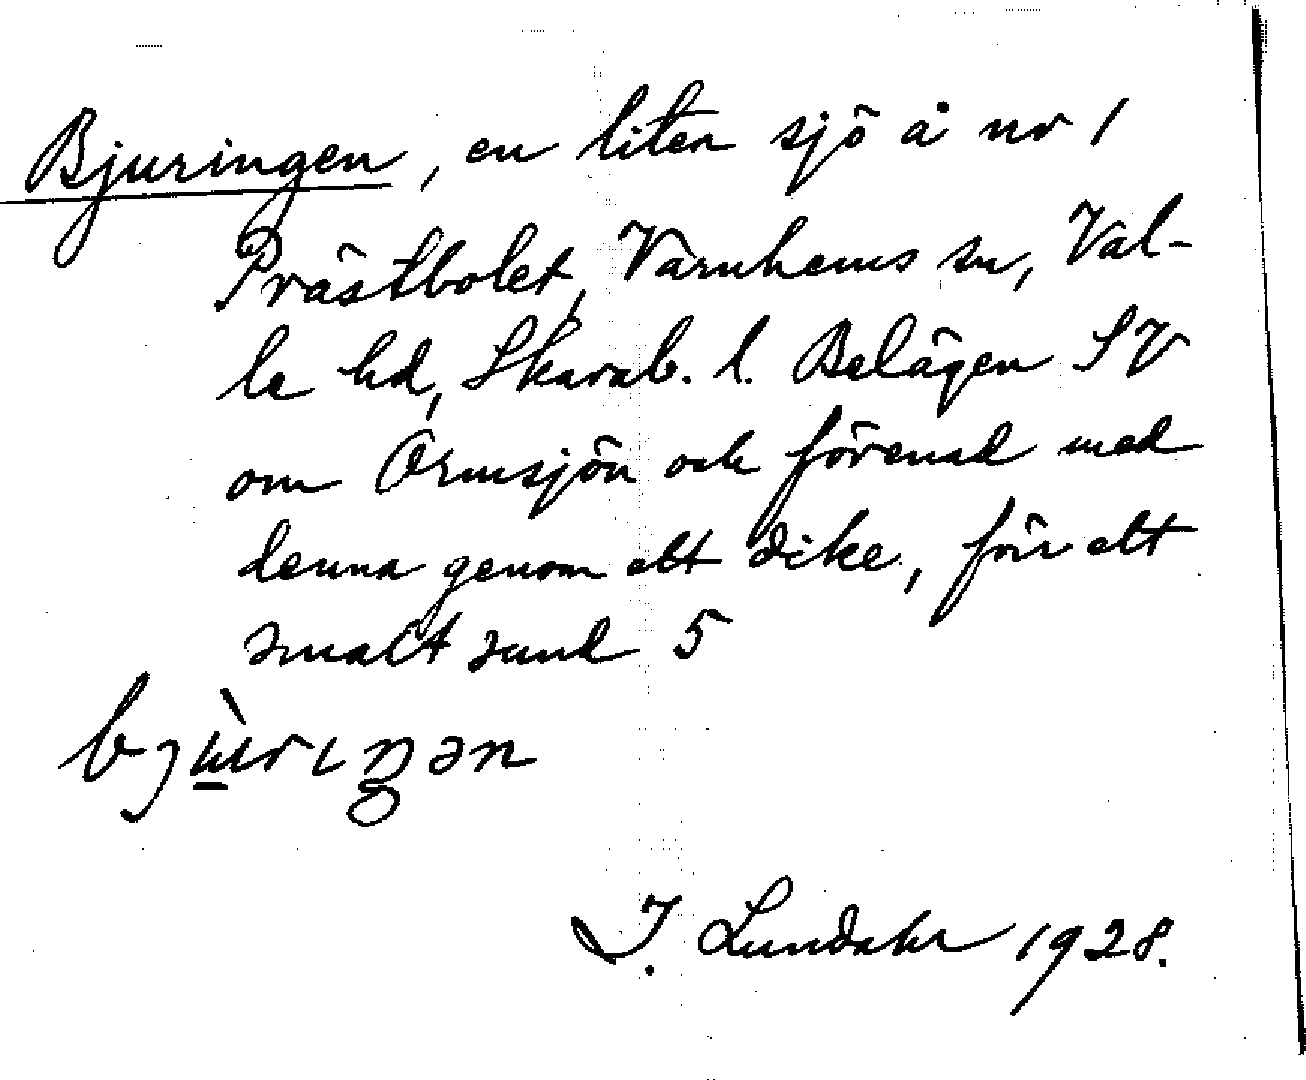 Bjuringen, en liten sjö å nr 1
Prästbolet, Varnhems sn, Val-
le hd, Skarab. l. Belägen SV
om Ormsjön och förenad med
denna genom ett dike, förr ett
smalt sund 5
I. Lundahl 1928.